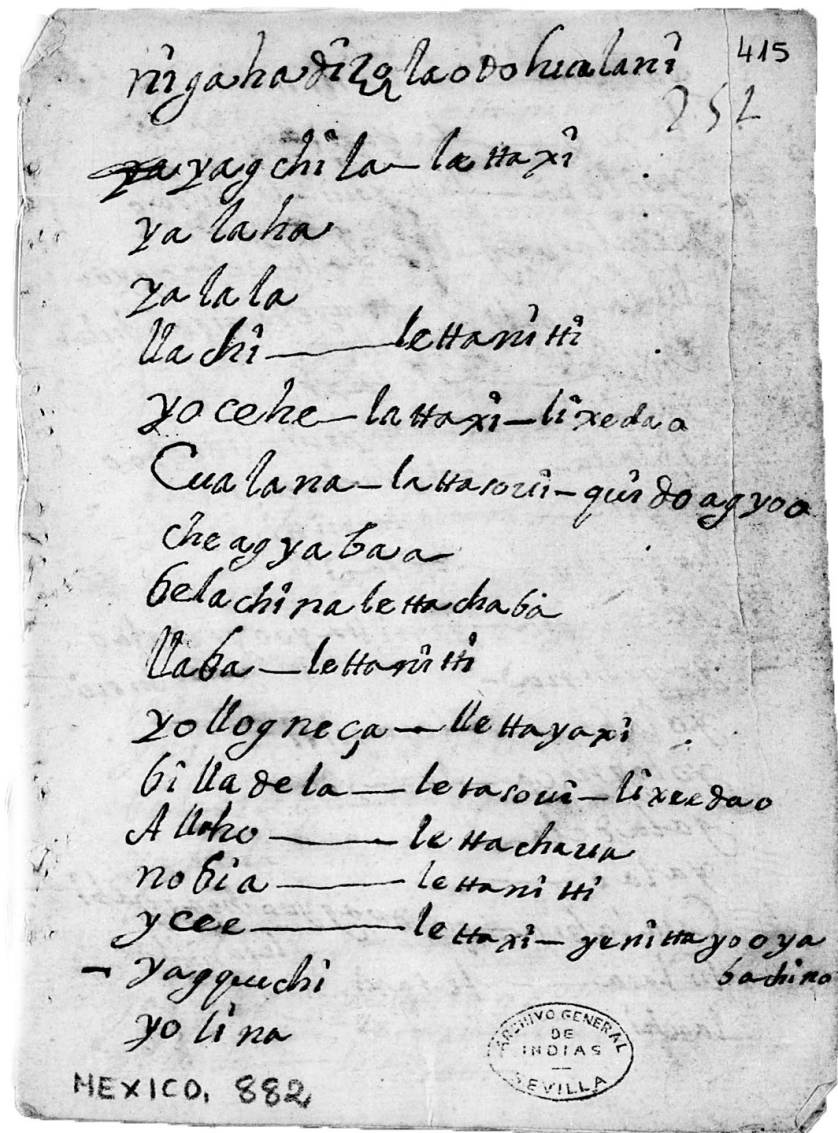 415
nigahadizolaodohualani
252
ya yagchila — lettaxi
yalaha
yalala
llachi — lettanitti
yocehe — lattaxi — lixedao
Cualana — lattasoui — quidoagyoo
cheagyabaa
belachinalettachaba
llaba — lettanitti
yollogneça — llettayaxi
billadela — letasoui — lixeedao
Alloho — lettachaua
nobia — lettanitti
ycee — lettaxi — yenittayooya
bachino
— yagquechi
yolina
ARCHIVO GENERAL
DE
INDIAS
SEVILLA
MEXICO, 882